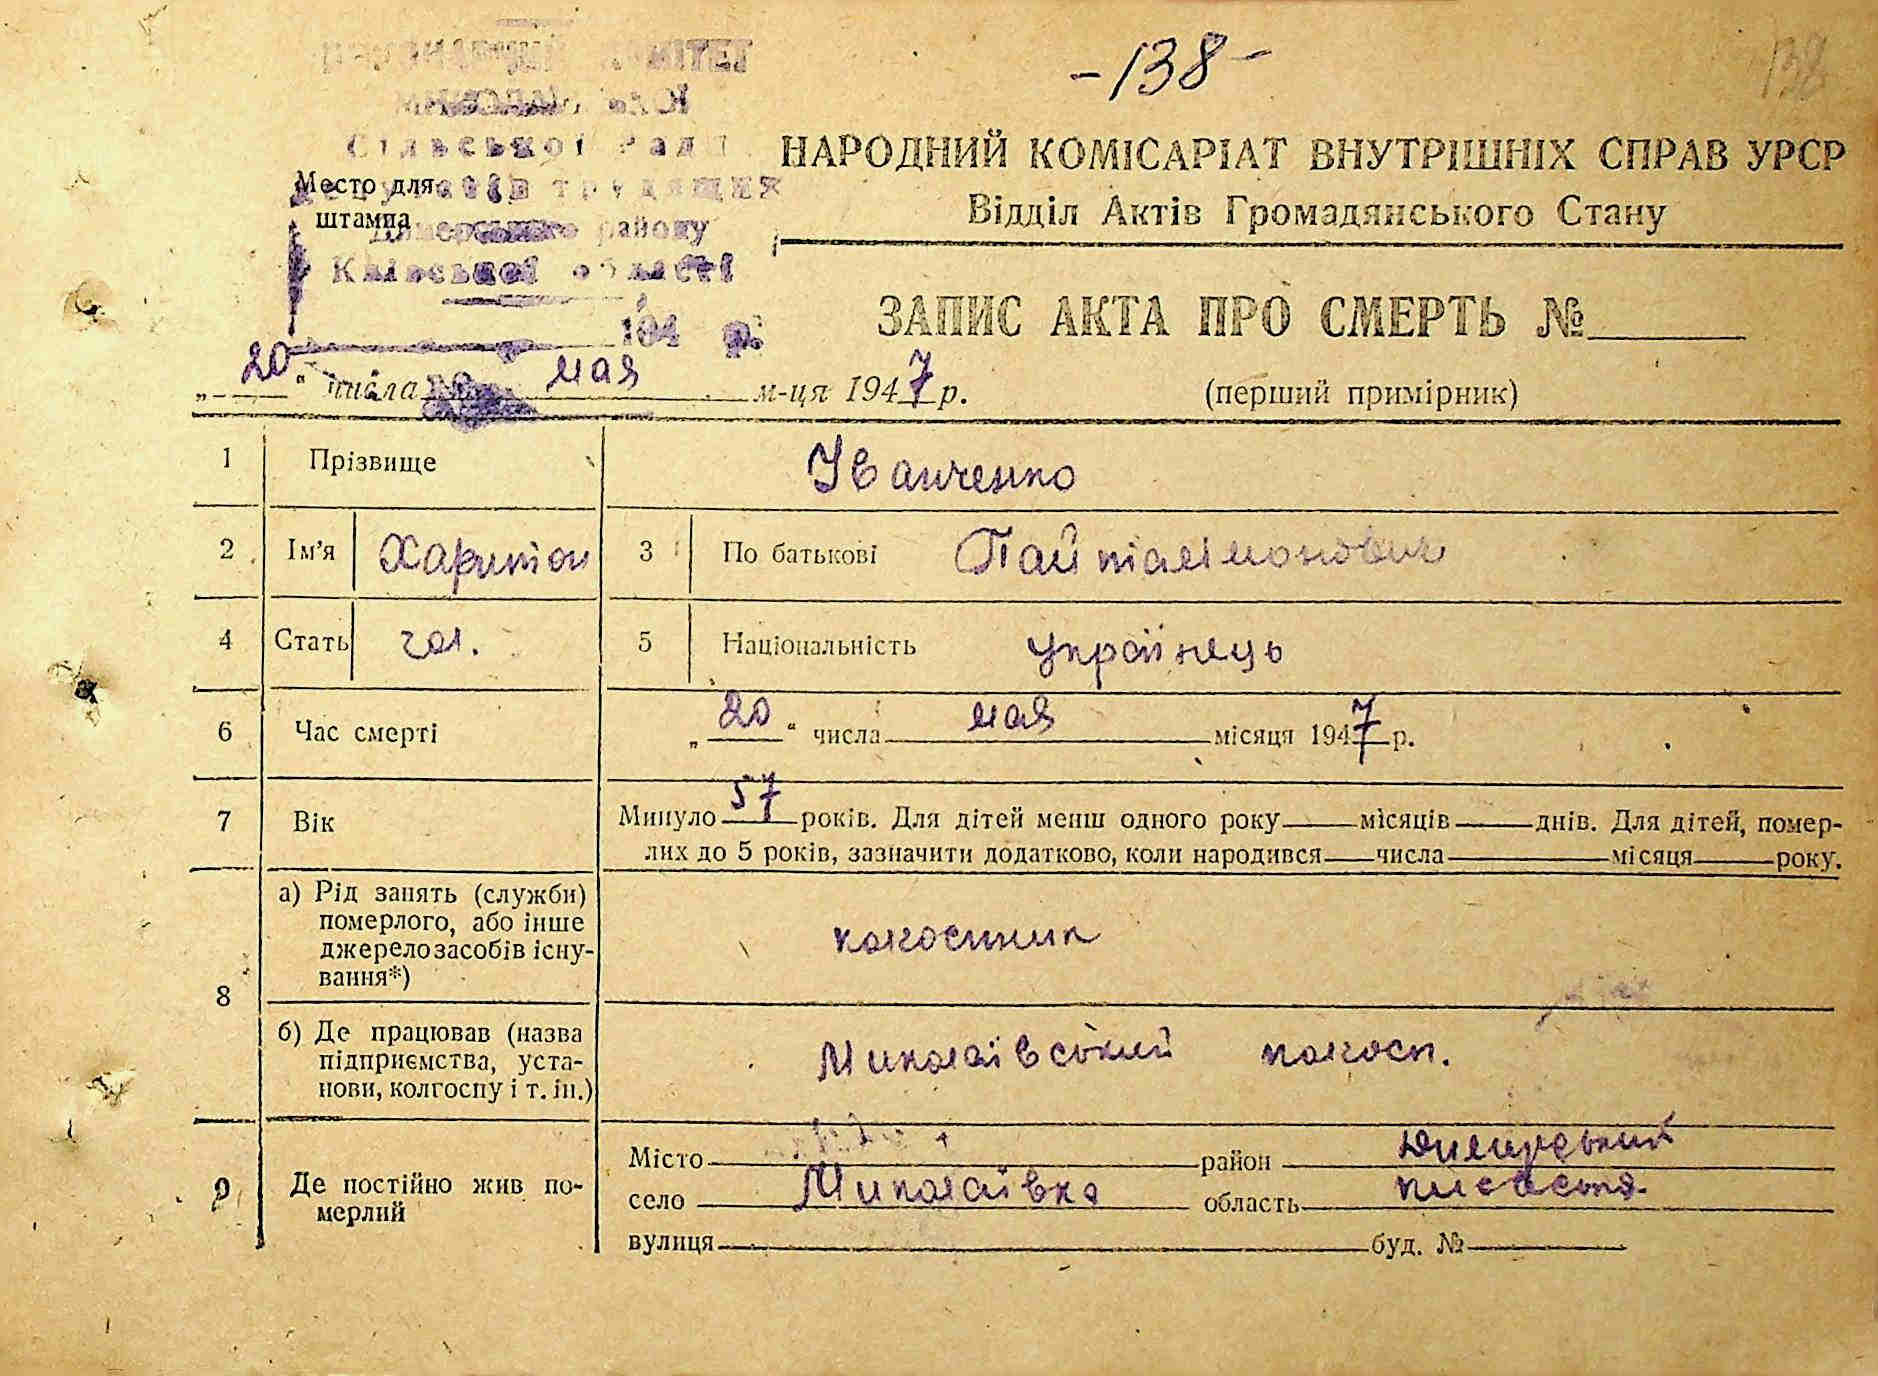 -138-
138
КОМІТЕТ
Сільської Ради
трудящих
Димерського району
Київської області
194 р.
Место для
штампа
НАРОДНИЙ КОМІСАРІАТ ВНУТРІШНІХ СПРАВ УРСР
Відділ Актів Громадянського Стану
ЗАПИС АКТА ПРО СМЕРТЬ №
„20“ числа мая м-ця 1947 р.
(перший примірник)
1 Прізвище Іванченко
2 Ім’я Харитон 3 По батькові Пайтілімонович
4 Стать чол. 5 Національність українець
6 Час смерті „20“ числа мая місяця 1947 р.
7 Вік Минуло 57 років. Для дітей менш одного року місяців днів. Для дітей, помер-
лих до 5 років, зазначити додатково, коли народився числа місяця року.
8 а) Рід занять (служби)
померлого, або інше
джерело засобів існу-
вання*)
колгоспник
б) Де працював (назва
підприємства, уста-
нови, колгоспу і т. ін.)
Миколаївський колгосп.
9 Де постійно жив по-
мерлий
Місто район Димирський
село Миколаївка область
вулиця буд. №